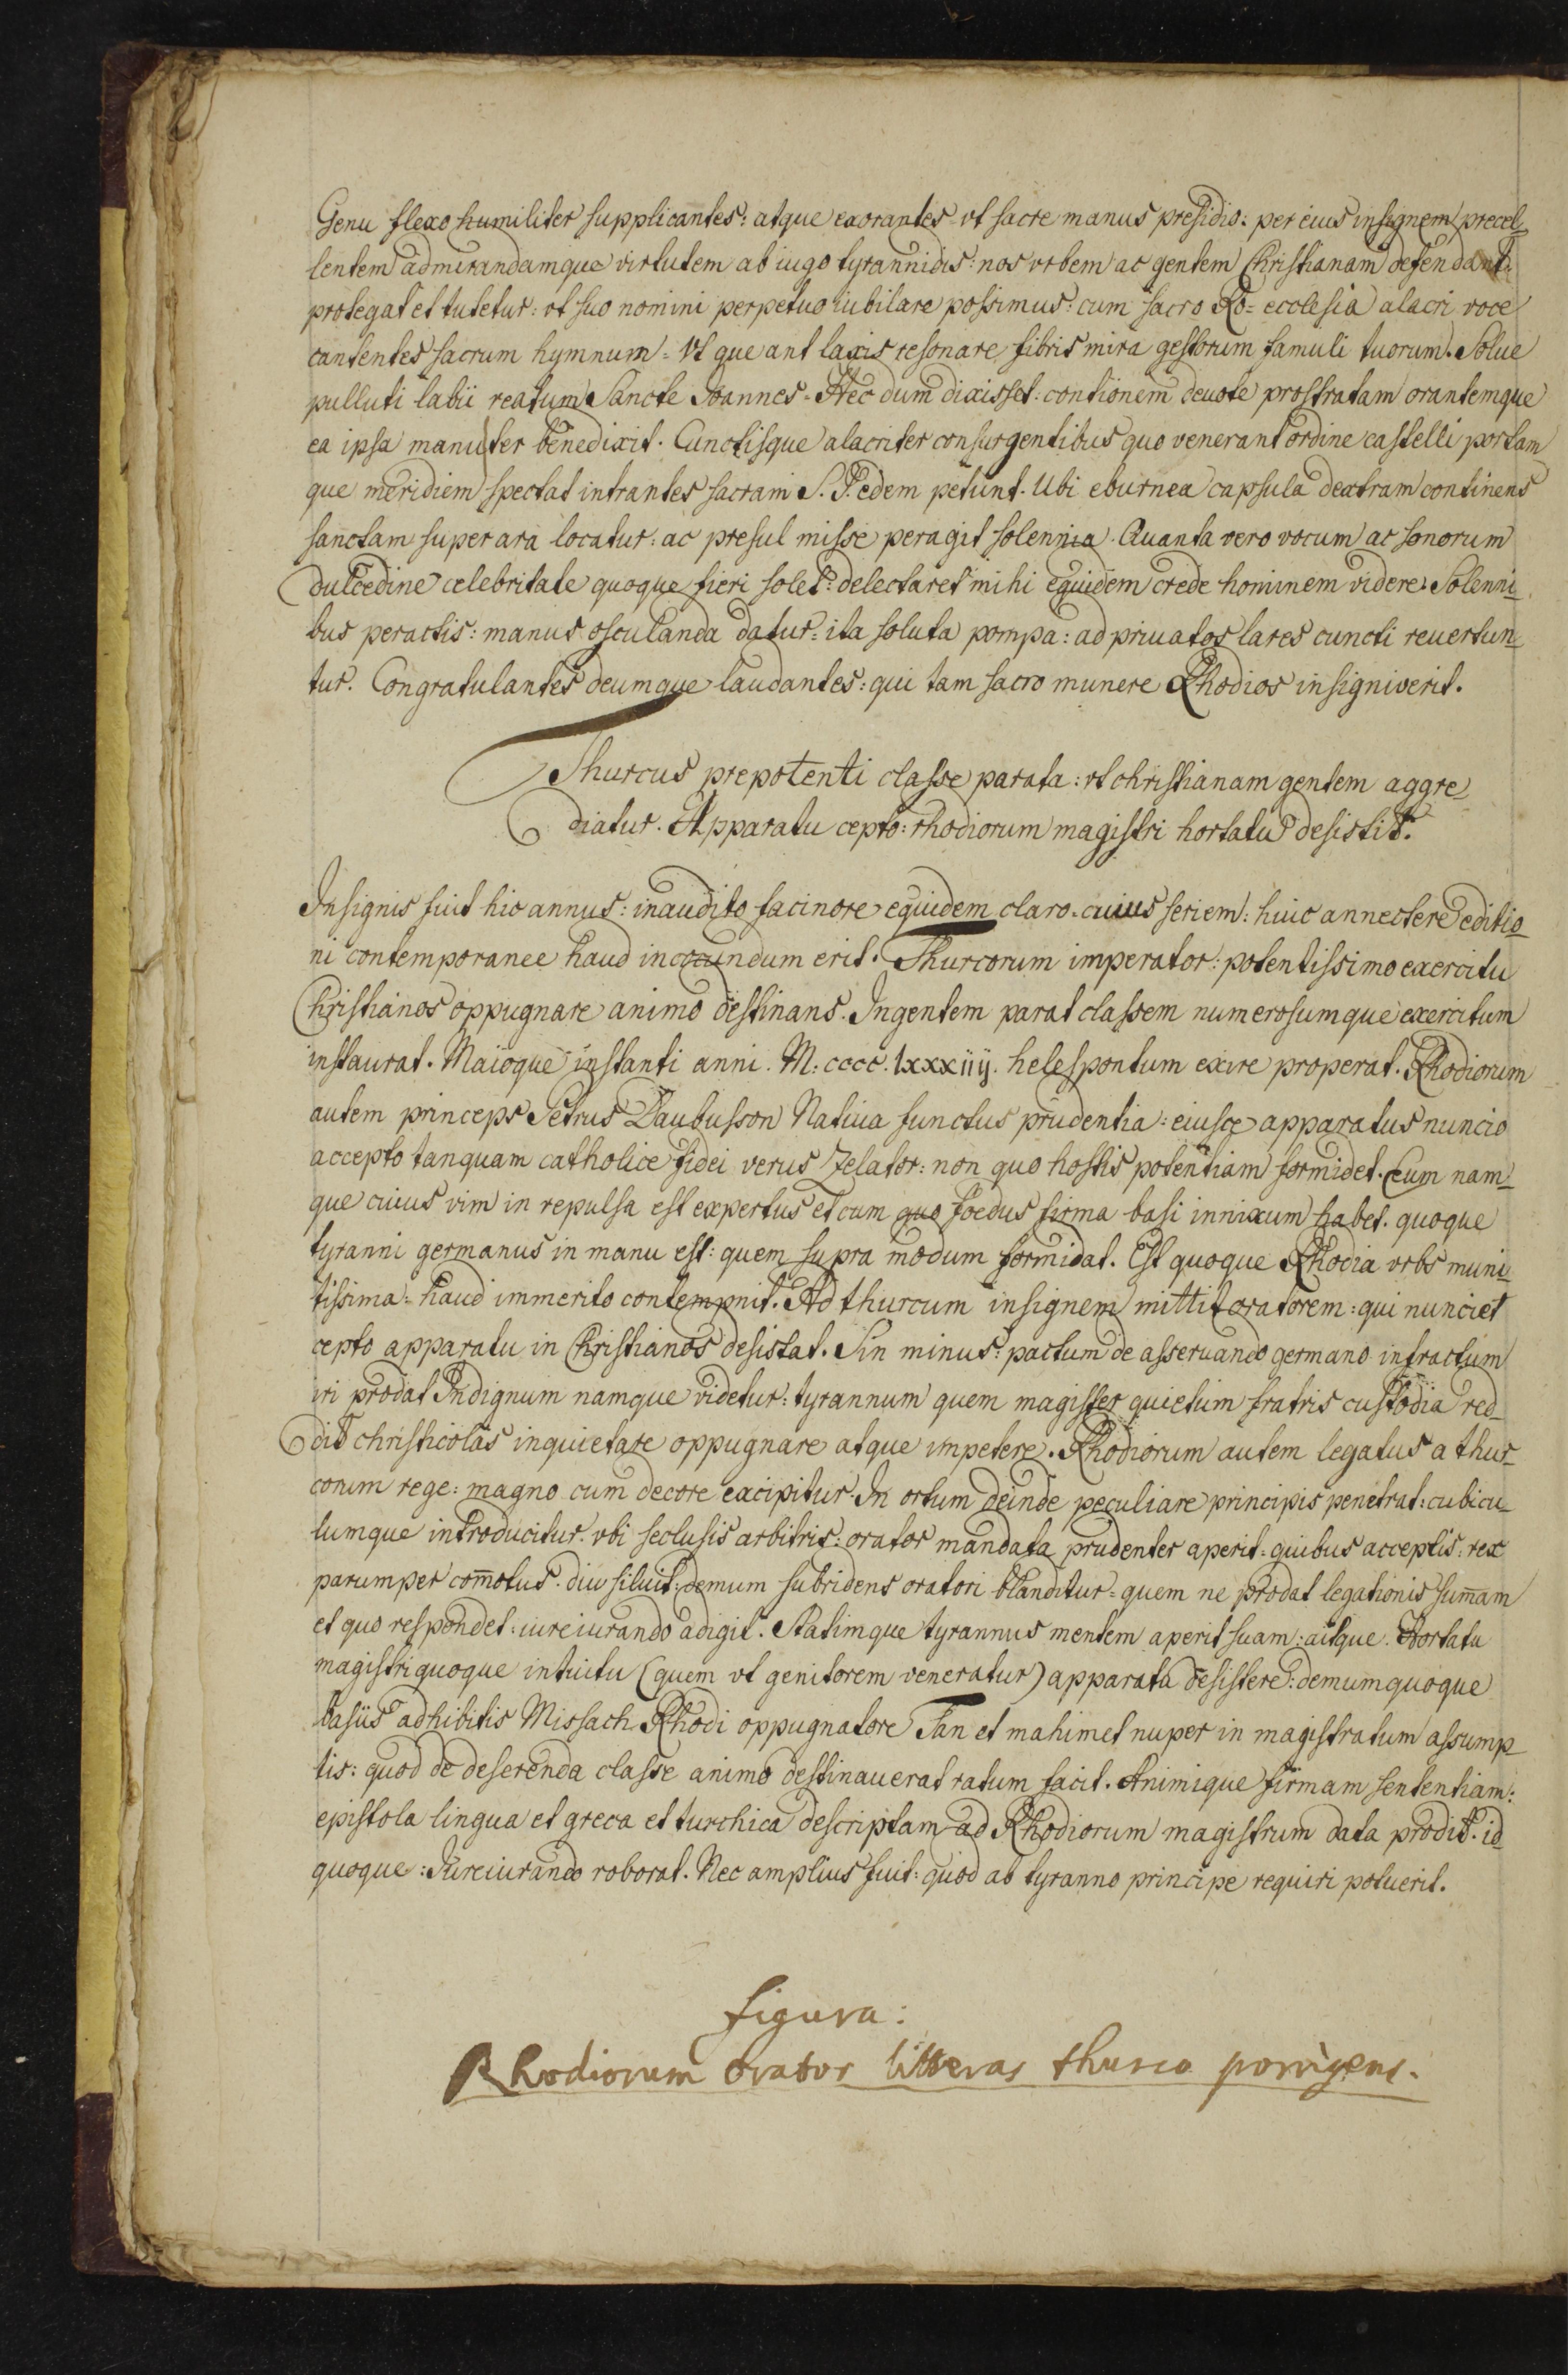 Genu flexo humiliter supplicantes: atque exorantes vt sacre manus presidio: per eius insignem precel-
lentem admirandamque virtutem ab iugo tyrannidis: nos vrbem ac gentem Christianam defendant:
protegat et tutetur: vt suo nomini perpetuo iubilare possimus: cum sacro Ro= ecclesia alacri voce
cantentes sacrum hymnum= Vt que ant laxis resonare fibris mira gestorum famuli tuorum. Solue
pulluti labii reatum Sancte Joannes= Hec dum dixisset: contionem deuote prostratam orantemque
ea ipsa manu ter benedixit. Cunctisque alacriter consurgentibus quo venerant ordine castelli portam
que meridiem spectat intrantes sacram S. J. edem petunt. Ubi eburnea capsula dextram continens
sanctam super ara locatur: ac presul misse peragit solennia. Quanta vero vocum ac sonorum
dulcedine celebritate quoque fieri solet: delectaret mihi equidem crede hominem videre. Solenni-
bus peractis: manus osculanda datur= ita soluta pompa: ad priuatos lares cuncti reuertun-
tur. Congratulantes deumque laudantes: qui tam sacro munere Rhodios insigniverit.
Thurcus prepotenti classe parata: vt christianam gentem aggre-
diatur. Apparatu cepto: rhodiorum magistri hortatu desistit.
Insignis fuit hic annus: inaudito facinore equidem claro. cuius seriem: huic annectere editio-
ni contemporanee haud incocundum erit. Thurcorum imperator: potentissimo exercitu
Christianos oppugnare animo destinans. Ingentem parat classem numerosumque exercitum
instaurat. Maioque instanti anni. M: cccc. lxxxiiij. helespontum exire properat. Rhodiorum
autem princeps Petrus Daubusson Natiua functus prudentia: eiusce apparatus nuncio
accepto tanquam catholice fidei verus Zelator: non quo hostis potentiam formidet. Eum nam-
que cuius vim in repulsa est expertus et cum quo foedus firma basi innixum habet. quoque
tyranni germanus in manu est: quem supra modum formidat. Est quoque Rhodia vrbs muni-
tissima= haud immerito contempnit. Ad thurcum insignem mittit oratorem: qui nunciet
cepto apparatu in Christianos desistat. Sin minus: pactum de asseruando germano infractum
iri prodat Indignum namque videtur: tyrannum quem magister quietum fratris custodia red-
dit christicolas inquietare oppugnare atque impetere. Rhodiorum autem legatus a thur-
corum rege: magno cum decore excipitur. In ortum deinde peculiare principis penetrat: cubicu-
lumque introducitur. vbi seclusis arbitris: orator mandata prudenter aperit: quibus acceptis: rex
parumper com̄otus. diu siluit: demum subridens oratori blanditur= quem ne prodat legationis sum̄am
et quo respondet: iureiurando adigit. Statimque tyrannus mentem aperit suam: aitque. Hortatu
magistri quoque intuitu (quem vt genitorem veneratur) apparatu desistere: demum quoque
basiis adhibitis Missach Rhodi oppugnatore Tan et mahimet nuper in magistratum assump-
tis: quod de deserenda classe animo destinauerat ratum facit. Animique firmam sententiam:
epistola lingua et greca et turchica descriptam ad Rhodiorum magistrum data prodit. id
quoque: Iureiurando roborat. Nec amplius fuit: quod ab tyranno principe requiri potuerit.
figura:
Rhodiorum orator litteras thurco porrigens.